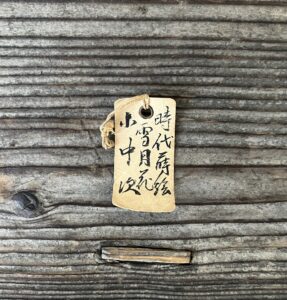 時代蒔絵
雪月花
小中次